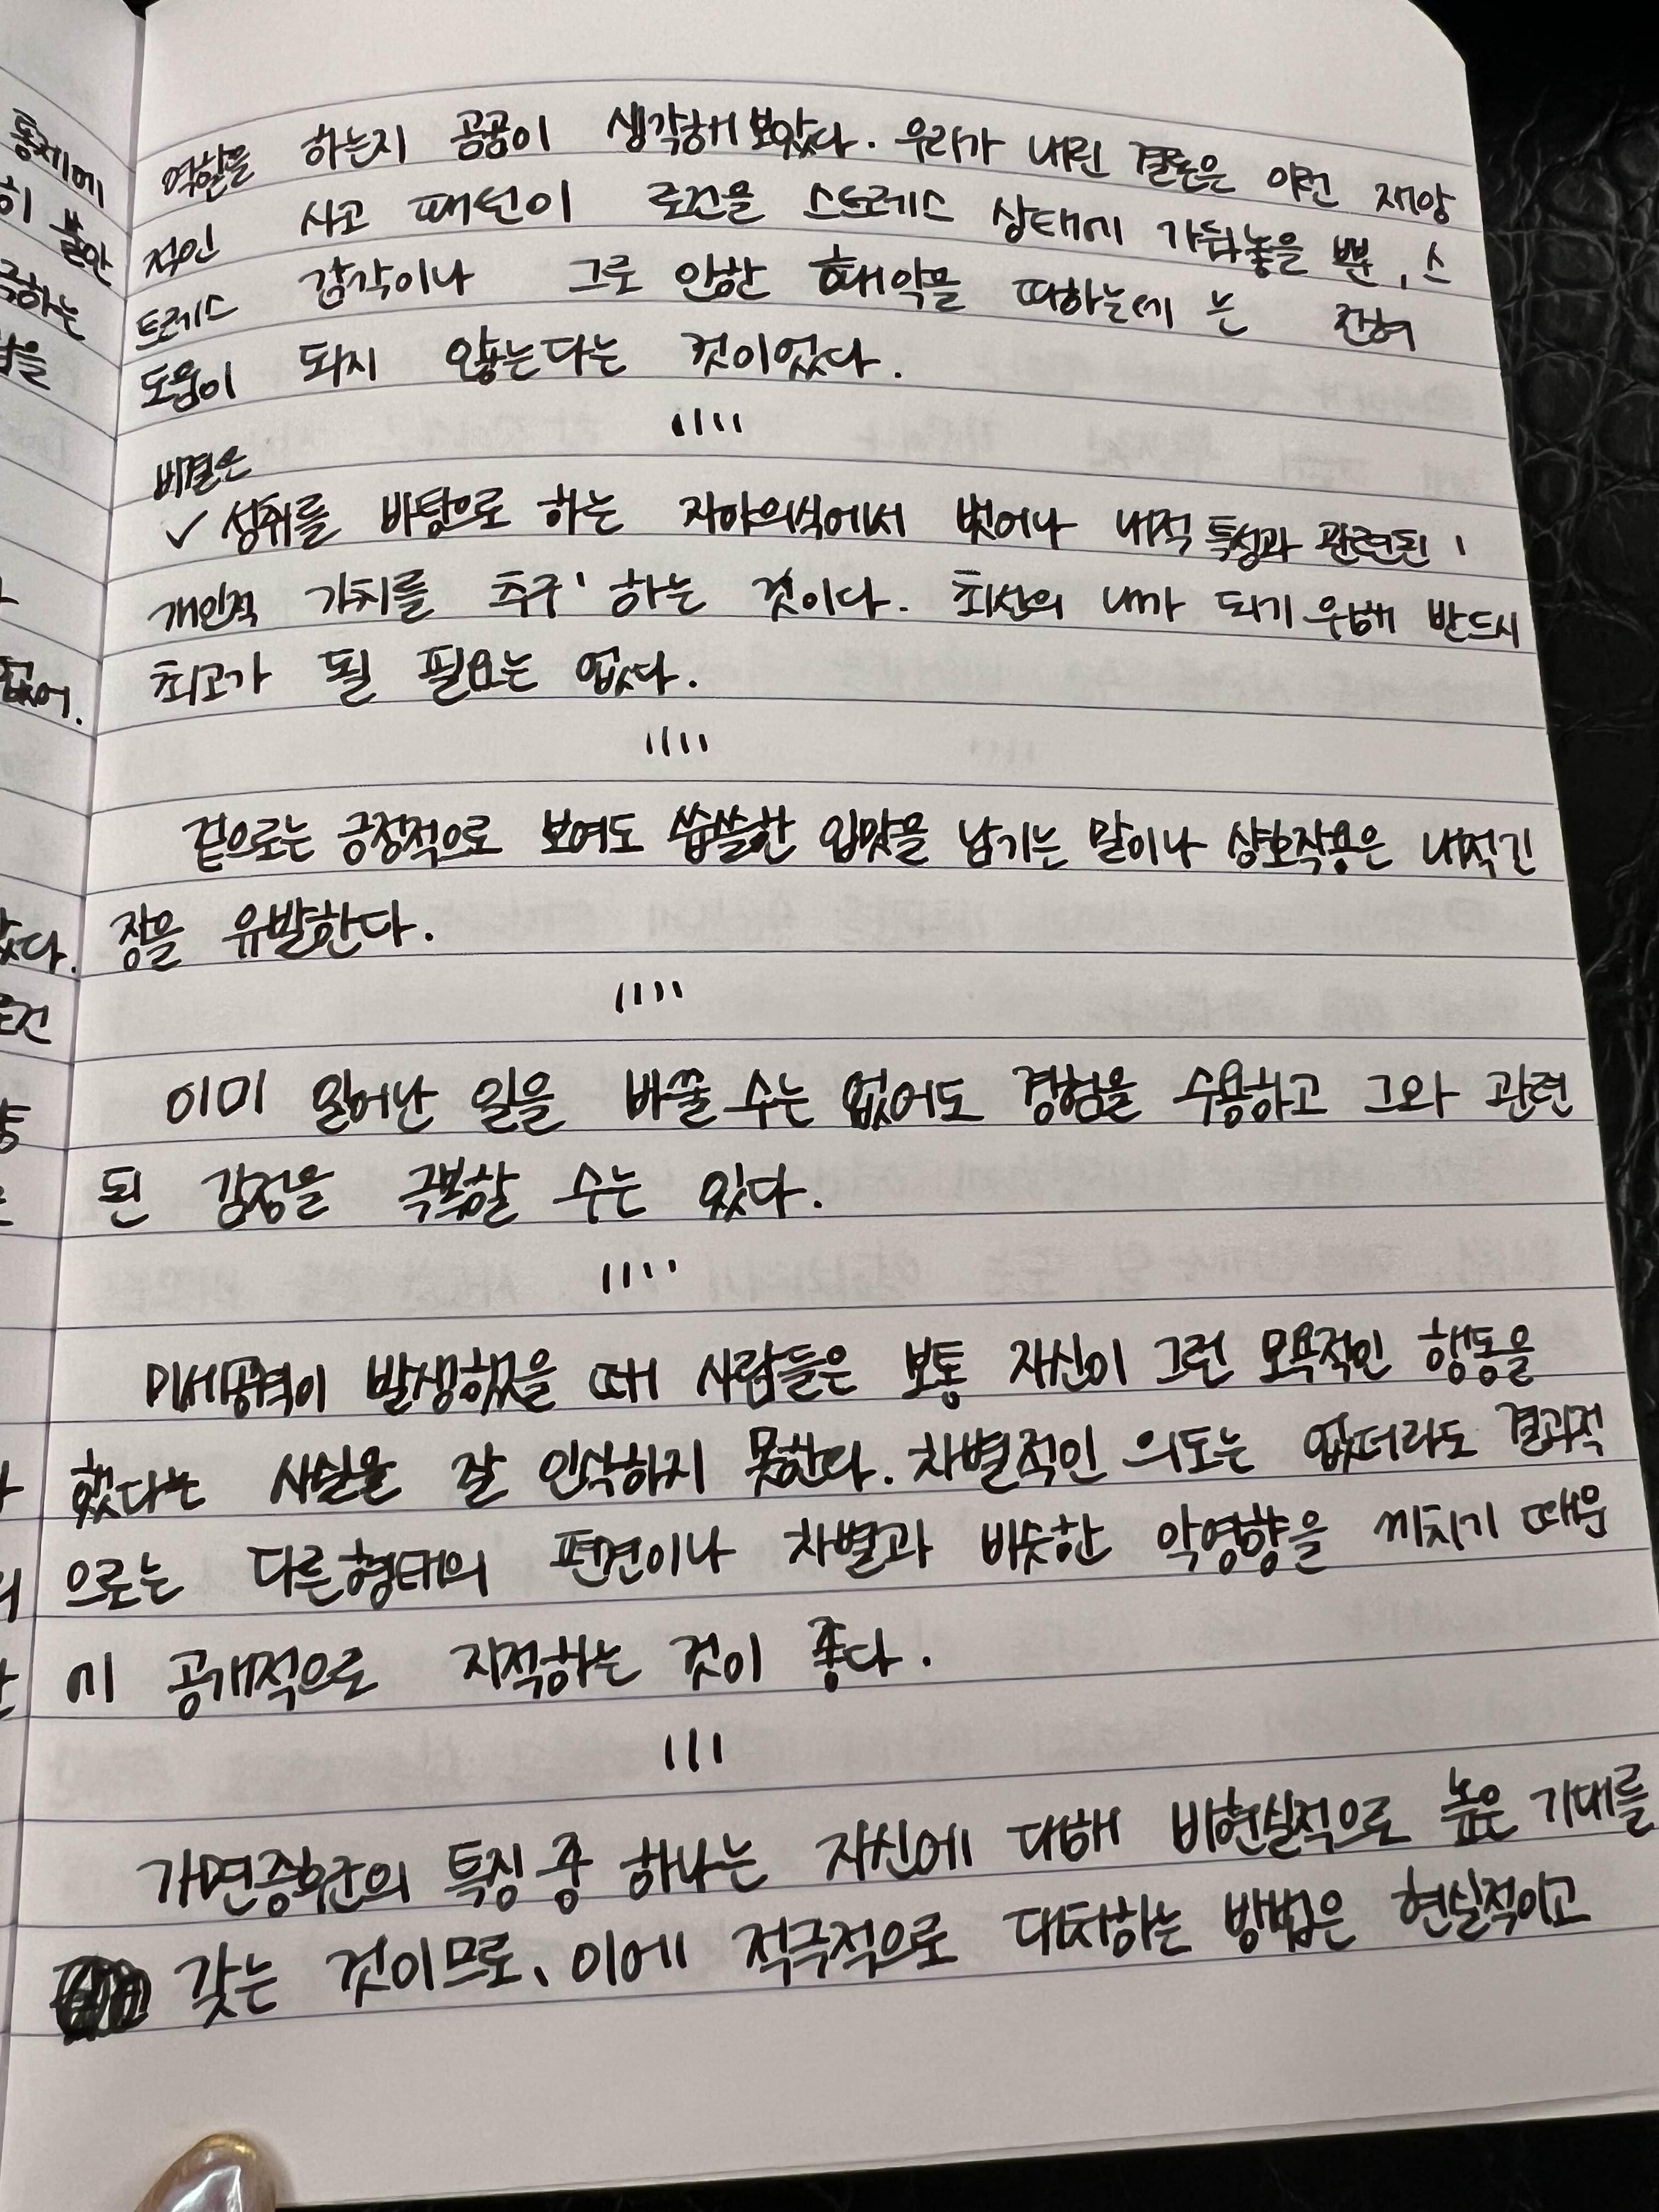 통제에
히 불안
역할을 하는지 곰곰이 생각해 보았다. 우리가 내린 결론은 이런 재앙
적인 사고 패턴이 로건을 스트레스 상태에 가둬놓을 뿐, 스
트레스 감각이나 그로 인한 해악을 피하는데는 전혀
도움이 되지 않는다는 것이었다.
비결은
✓ 성취를 바탕으로 하는 자아의식에서 벗어나 내적 특성과 관련된 '
개인적 가치를 추구' 하는 것이다. 최선의 내가 되기 위해 반드시
최고가 될 필요는 없다.
겉으로는 긍정적으로 보여도 씁쓸한 입맛을 남기는 말이나 상호작용은 내적긴
장을 유발한다.
이미 일어난 일을 바꿀 수는 없어도 경험을 수용하고 그와 관련
된 감정을 극복할 수는 있다.
미세공격이 발생했을 때 사람들은 보통 자신이 그런 모욕적인 행동을
했다는 사실을 잘 인식하지 못한다. 차별적인 의도는 없더라도 결과적
으로는 다른형태의 편견이나 차별과 비슷한 악영향을 끼치기 때문
에 공개적으로 지적하는 것이 좋다.
가면증후군의 특징 중 하나는 자신에 대해 비현실적으로 높은 기대를
갖는 것이므로, 이에 적극적으로 대처하는 방법은 현실적이고